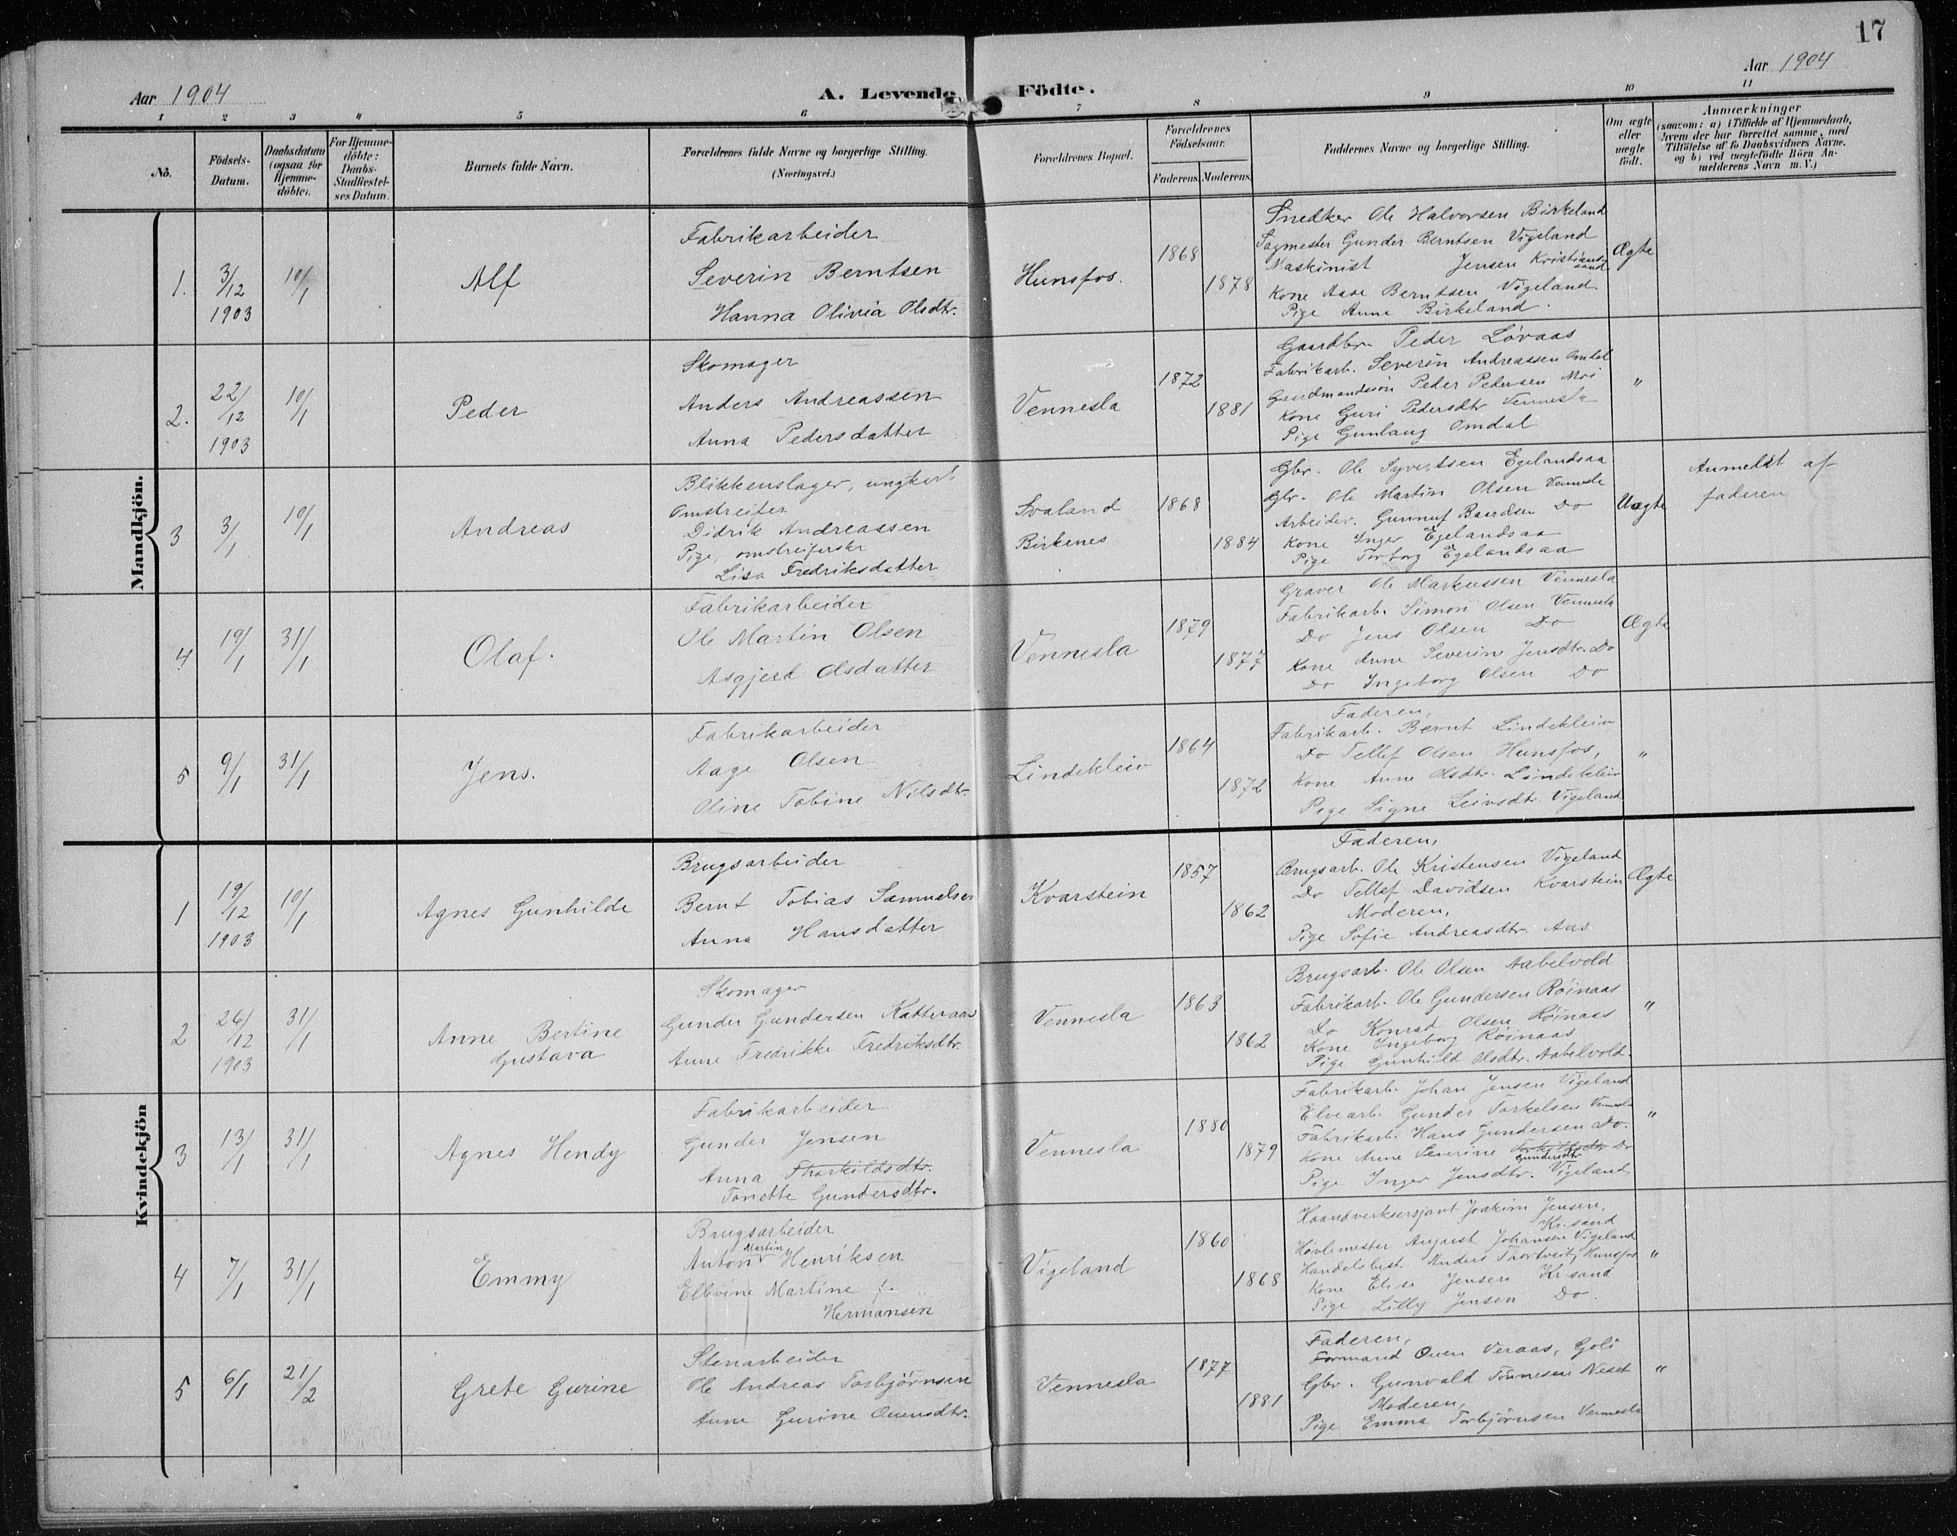 17
Aar 1904
A. Levende Födte.
Aar 1904
1 2 3 4 5 6 7 8 9 10 11
No.
Födsels-Datum.
Daabsdatum (ogsaa for Hjemmedöbte).
For Hjemmedöbte: Daabs-Stadfæstelses Datum.
Barnets fulde Navn.
Forældrenes fulde Navne og borgerlige Stilling. (Næringsvei.)
Forældrenes Bopæl.
Forældrenes Födselsaar.
Faderens. Moderens.
Faddernes Navne og borgerlige Stilling.
Om ægte eller uægte födt.
Anmærkninger
(saasom: a) i Tilfælde af Hjemmedaab, hvem der har forrettet samme, med Tilföielse af to Daabsvidners Navne, og b) ved uægtefödte Börn Anmelderens Navn m. V.)
Mandkjön.
1. 3/12 1903 10/1
Alf
Fabrikarbeider
Severin Berntsen
Hanna Olivia Olsdtr.
Hunsfos.
1868
1878
Snedker Ole Halvorsen Birkeland
Sagmester Gunder Berntsen Vigeland
Maskinist Jensen Kristianssand
Kone Aase Berntsen Vigeland
Pige Anne Birkeland.
Ægte
2. 22/12 1903 10/1
Peder
Skomager
Anders Andreassen
Anna Pedersdatter
Vennesla
1872
1881
Gaardbr. Peder Løvaas
Fabrikarb. Severin Andreassen Omdal
Gaardmandssön Peder Pedersen Moi
Kone Guri Pedersdtr Vennesla
Pige Gunlaug Omdal
"
3 3/1 10/1
Andreas
Blikkenslager, ungkarl
Omstreifer
Didrik Andreassen
Pige, omstreiferske
Lisa Fredriksdatter
Svaland
Birkenes
1868
1884
Gbr. Ole Syvertsen Egelandsaa
Gbr. Ole Martin Olsen Vennesla
Arbeider. Gunnuf Baardsen Do
Kone Inger Egelandsaa
Pige Torborg Egelandsaa
Uægte
Anmeldt af
faderen
4 19/1 31/1
Olaf.
Fabrikarbeider
Ole Martin Olsen
Asgjerd Olsdatter
Vennesla
1879
1877
Graver Ole Markussen Vennesla
Fabrikarb. Simon Olsen Vennesla
Do Jens Olsen Do
Kone Anne Severine Jensdtr. Do
Do Ingeborg Olsen Do
Ægte
5 9/1 31/1
Jens.
Fabrikarbeider
Aage Olsen
Oline Tobine Nilsdtr.
Lindekleiv
1864
1872
Faderen,
Fabrikarb. Bernt Lindekleiv
Do Tellef Olsen Hunsfos,
Kone Anne Olsdtr. Lindekleiv
Pige Signe Leivsdtr. Vigeland
"
Kvindekjön
1 19/12 1903 10/1
Agnes Gunhilde
Brugsarbeider
Bernt Tobias Samuelsen
Anna Hansdatter
Kvarstein
1857
1862
Faderen,
Brugsarb. Ole Kristensen Vigeland
Do Tellef Davidsen Kvarstein
Moderen,
Pige Sofie Andreasdtr. Aas
Ægte
2 26/12 1903 31/1
Anne Bertine
Gustava
Skomager
Gunder Gundersen Katteraas
Anne Fredrikke Fredriksdtr.
Vennesla
1863
1862
Brugsarb. Ole Olsen Aabelvold
Fabrikarb. Ole Gundersen Röinaas
Do Konrad Olsen Röinaas
Kone Ingeborg Röinaas
Pige Gunhild Olsdtr. Aabelvold
"
3 13/1 31/1
Agnes Hendy
Fabrikarbeider
Gunder Jensen
Anna Thorkildsdtr.
Tonette Gundersdtr.
Vennesla
1880
1879
Fabrikarb. Johan Jensen Vigeland
Elvearb. Gunder Torkelsen Vennesla
Fabrikarb. Hans Gundersen Do.
Kone Anne Severine Gundersdtr Do
Pige Inger Jensdtr. Vigeland
"
4 7/1 31/1
Emmy
Brugsarbeider
Anton Martin Henriksen
Ellevine Martine f.
Hermansen
Vigeland
1860
1868
Haandverkersersjant Joakim Jensen,
Kr.sand
Hövlemester August Johansen Vigeland
Handelsbest. Anders Thortveit, Hunsfos
Kone Elise Jensen Kr.sand
Pige Lilly Jensen Do.
"
5 6/1 21/2
Grete Gurine
Stenarbeider
Ole Andreas Torbjörnsen
Anne Gurine Ouensdtr.
Vennesla
1877
1881
Faderen,
Formand Ouen Veraas,
Gbr. Gunvald Tönnesen Neset
Moderen,
Pige Emma Torbjörnsen Vennesla
"